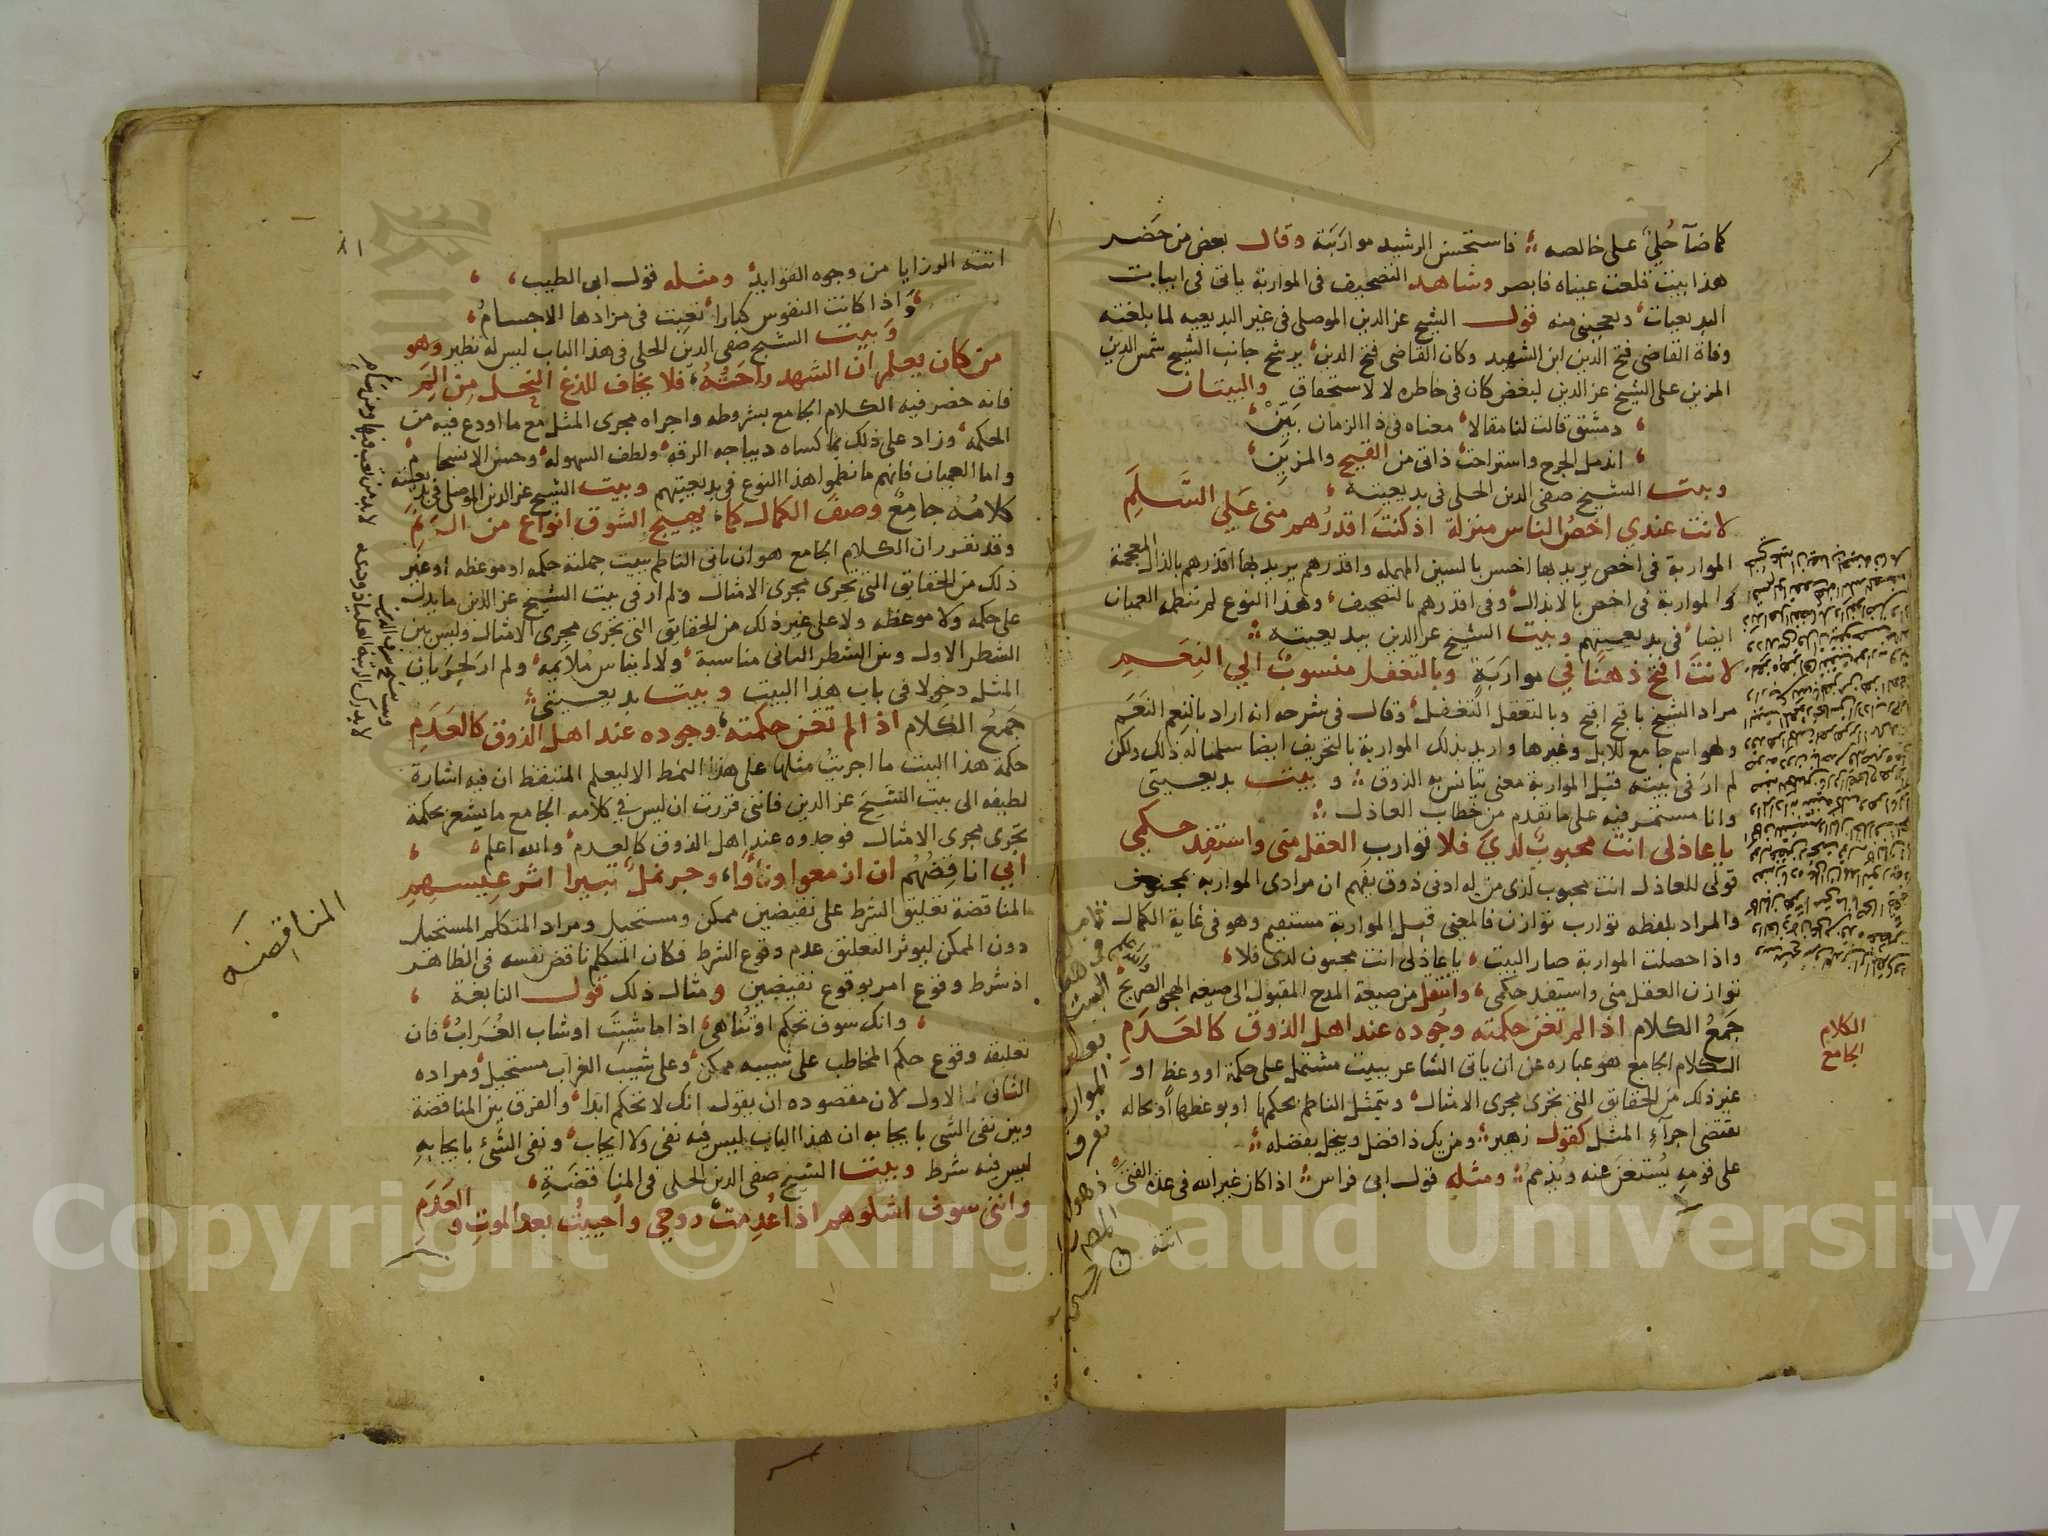 كما ضآ حُلِيّ على خالصه فاستحسن الرشيد مواربَته وقال بعض من حَضر
هذا بيت قلعت عيناه فابصر وشاهد التصحيف فى المواربة ياتى فى ابيات
البديعيات ويعجبنى منه قول الشيخ عز الدين الموصلى فى غير البديعيه لما بلغته
وفاة القاضى فتح الدين ابن الشهيد وكان القاضى فتح الدين يرشح جانب الشيخ شمس الدين
المزين على الشيخ عز الدين لبغض كان فى خاطره لا لاستحقاق والبيتان
دمشق قالت لنا مقالا معناه فى ذا الزمان بَيّنْ
اندمل الجرح واستراحت ذاتى من الفتح والمزين
وبيت الشيخ صفى الدين الحلى فى بديعيته
لانت عندي اخصُ الناس منزلة اذ كنتَ اقدرُهم منى عَلى السَّلَمِ
المواربة فى اخص يريد بها اخس بالسين المهمله واقدرهم يريد بها اقذرهم بالذال المعجمة
والمواربة فى اخص بالابدال وفى اقدرهم بالتصحيف وهذا النوع لم تنظمه العميان
ايضا فى بديعيتهم وبيت الشيخ عز الدين ببديعيته
لانتَ افتح ذهنًا في مواربَةٍ وبالتعقل منسوبٌ الي النِعَمِ
مراد الشيخ بافتح اقبح وبالتعقل التغفل وقال فى شرحه انه اراد بالنِعم النَعَم
وهو اسم جامع للابل وغيرها واريد بذلك المواربة بالتحريف ايضا سلمنا له ذلك ولكن
لم ارَ فى بيته قبل المواربة معنى يتانس به الذوق وبيت بديعيتى
وانا مستمر فيه على ما تقدم من خطاب العاذل
يا عاذلى انت محبوبٌ لديّ فلا تواربِ العقل منى واستفد حكمي
قولى للعاذل انت محبوب لدى من له ادنى ذوق يفهم ان مرادى المواربه بمجنون
والمراد بلفظه توارب توازن فالمعنى قبل المواربة مستقيم وهو فى غاية الكمال
واذا حصلت المواربة صار البيت يا عاذلى انت مجنون لدى فلا
توازن العقل منى واستفد حكمى وانتقل من صيغة المدح المقبول الى صيغه الهجو الصريح
جَمعُ الكلام اذا لم تغن حكمته وجُوده عند اهل الذوق كالعَدَمِ
الكلام الجامع هو عباره عن ان ياتى الشاعر ببيت مشتمل على حكمة او وعظٍ او
غير ذلك من الحقايق التى تجرى مجرى الامثال ويتمثل الناظم بحكمها او بوعظها او بحاله
تقتضى اجراء المثل كقول زهير ومن يك ذا فضل ويبخل بفضله
على قومه يُستغنَ عنه ويُذممُ ومثله قول ابى فراس اذا كان غير الله فى عدة الفتى
اتته
الكلام
الجامع
٨١
اتته الرزايا من وجوه الفوايد ومثله قول ابى الطيب
وَاذا كانت النفوس كبارا تعبت فى مرادها الاجسامُ
وَبيت الشيخ صفى الدين الحلى فى هذا الباب ليس له نظير وهو
من كان يعلم ان الشهد راحَتُهُ فلا يخاف للدغ النحل من الَمِ
فانه حضر فيه الكلام الجامع بشروطه واجراه مجرى المثل مع ما اودع فيه من
الحكمه وزاد على ذلك بما كساه ديباجه الرقه ولطف السهوله وحسن الانسجام
واما العميان فانهم ما نظموا هذا النوع فى بديعيتهم وبيت الشيخ عز الدين الموصلى فى بديعيته
كلامُه جامعٌ وصفَ الكمال كما يهيج الشوق انواع من الرَّنَمِ
وقد تقرر ان الكلام الجامع هو ان ياتى الناظم ببيت جملته حكمه او موعظه او غير
ذلك من الحقايق التى تجرى مجرى الامثال ولم ار فى بيت الشيخ عز الدين ما يدل
على حكمه ولا موعظه ولا على غير ذلك من الحقايق التى تجرى مجرى الامثال وليس بين
الشطر الاول وبين الشطر الثانى مناسبة ولا ايناس ملايمه ولم ار لجريان
المثل دخولا فى باب هذا البيت وبيت بديعيتى
جَمعُ الكَلام اذ الم تغن حكمته وجوده عند اهل الذوق كالعَدَمِ
حكمة هذا البيت ما اجريتُ مثلها على هذا النمط الا ليعلم المتيقظ ان فيه اشارة
لطيفه الى بيت الشيخ عز الدين فاننى قررت ان ليس في كلامه الجامع ما يشعر بحكمة
تجرى مجرى الامثال فوجدوه عند اهل الذوق كالعدم والله اعلم
انِي اناقِضُهُم ان ازمعوا ونأَوا وجر نملٌ ثبيرا اثر عِيسِهمِ
المناقضة تعليق الشرط على نقيضين ممكن ومستحيل ومراد المتكلم المستحيل
دون الممكن ليوثر التعليق عدم وقوع الشرط فكان المتكلم ناقض نفسه فى الظاهر
اذ شرط وقوع امر بوقوع نقيضين ومثال ذلك قول النابغة
وانك سوف تحكم او تُناهى اذا ما شبتَ او شاب الغُرَابُ فان
تعليقه وقوع حكم المخاطب على شيبه ممكن وعلى شيب الغراب مستحيل ومراده
الثانى لا الاول لان مقصوده ان يقول انك لا تحكم ابدا والفرق بين المناقضة
وبين نفى الشى بايجابه ان هذا الباب ليس فيه نفى ولا ايجاب ونفى الشئ بايجابهِ
ليس فيه شرط وبيت الشيخ صفى الدين الحلى فى المناقضَةِ
وانني سوف اسْلوهم اذا عُدِمت روحي واُحييتُ بعد الموتِ والعَدَمِ
المناقضَه
Copyright © King Saud University